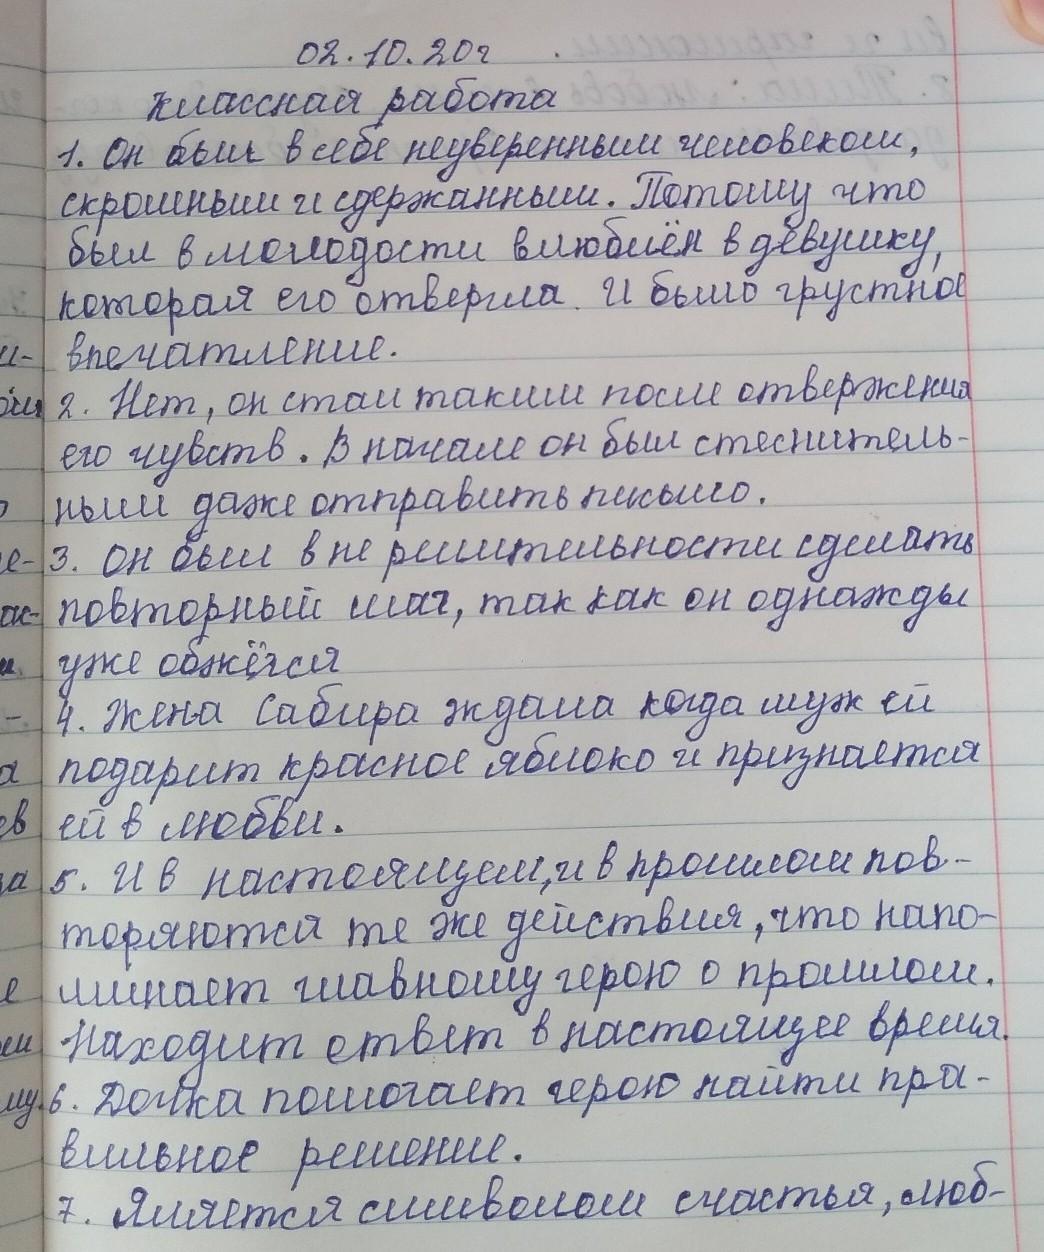 02.10.20г
классная работа
1. Он был в себе неуверенным человеком,
скромным и сдержанным. Потому что
был в молодости влюблён в девушку,
которая его отвергла. И было грустное
впечатление.
2. Нет, он стал таким после отвержения
его чувств. В начале он был стеснитель-
ным даже отправить письмо.
3. Он был в не решительности сделать
повторный шаг, так как он однажды
уже обжёгся
4. Жена Сабира ждала когда муж ей
подарит красное яблоко и признается
ей в любви.
5. И в настоящем, и в прошлом пов-
торяются те же действия, что напо-
минает главному герою о прошлом.
Находит ответ в настоящее время.
6. Дочка помогает герою найти пра-
вильное решение.
7. Является символом счастья, люб-